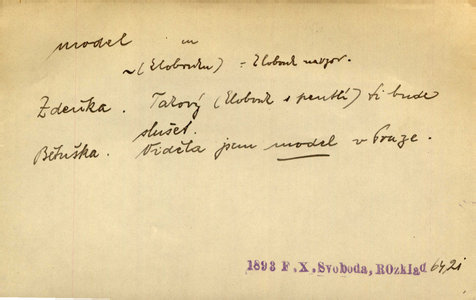 model m
~ (klobouku) = klobouk na vzor.
Zdeńka. Takový (klobouk s pentlí) ti bude
slušet.
Bětuška. Viděla jsem model v Praze.
1893 F.X.Svoboda, ROzklad 64, 2i